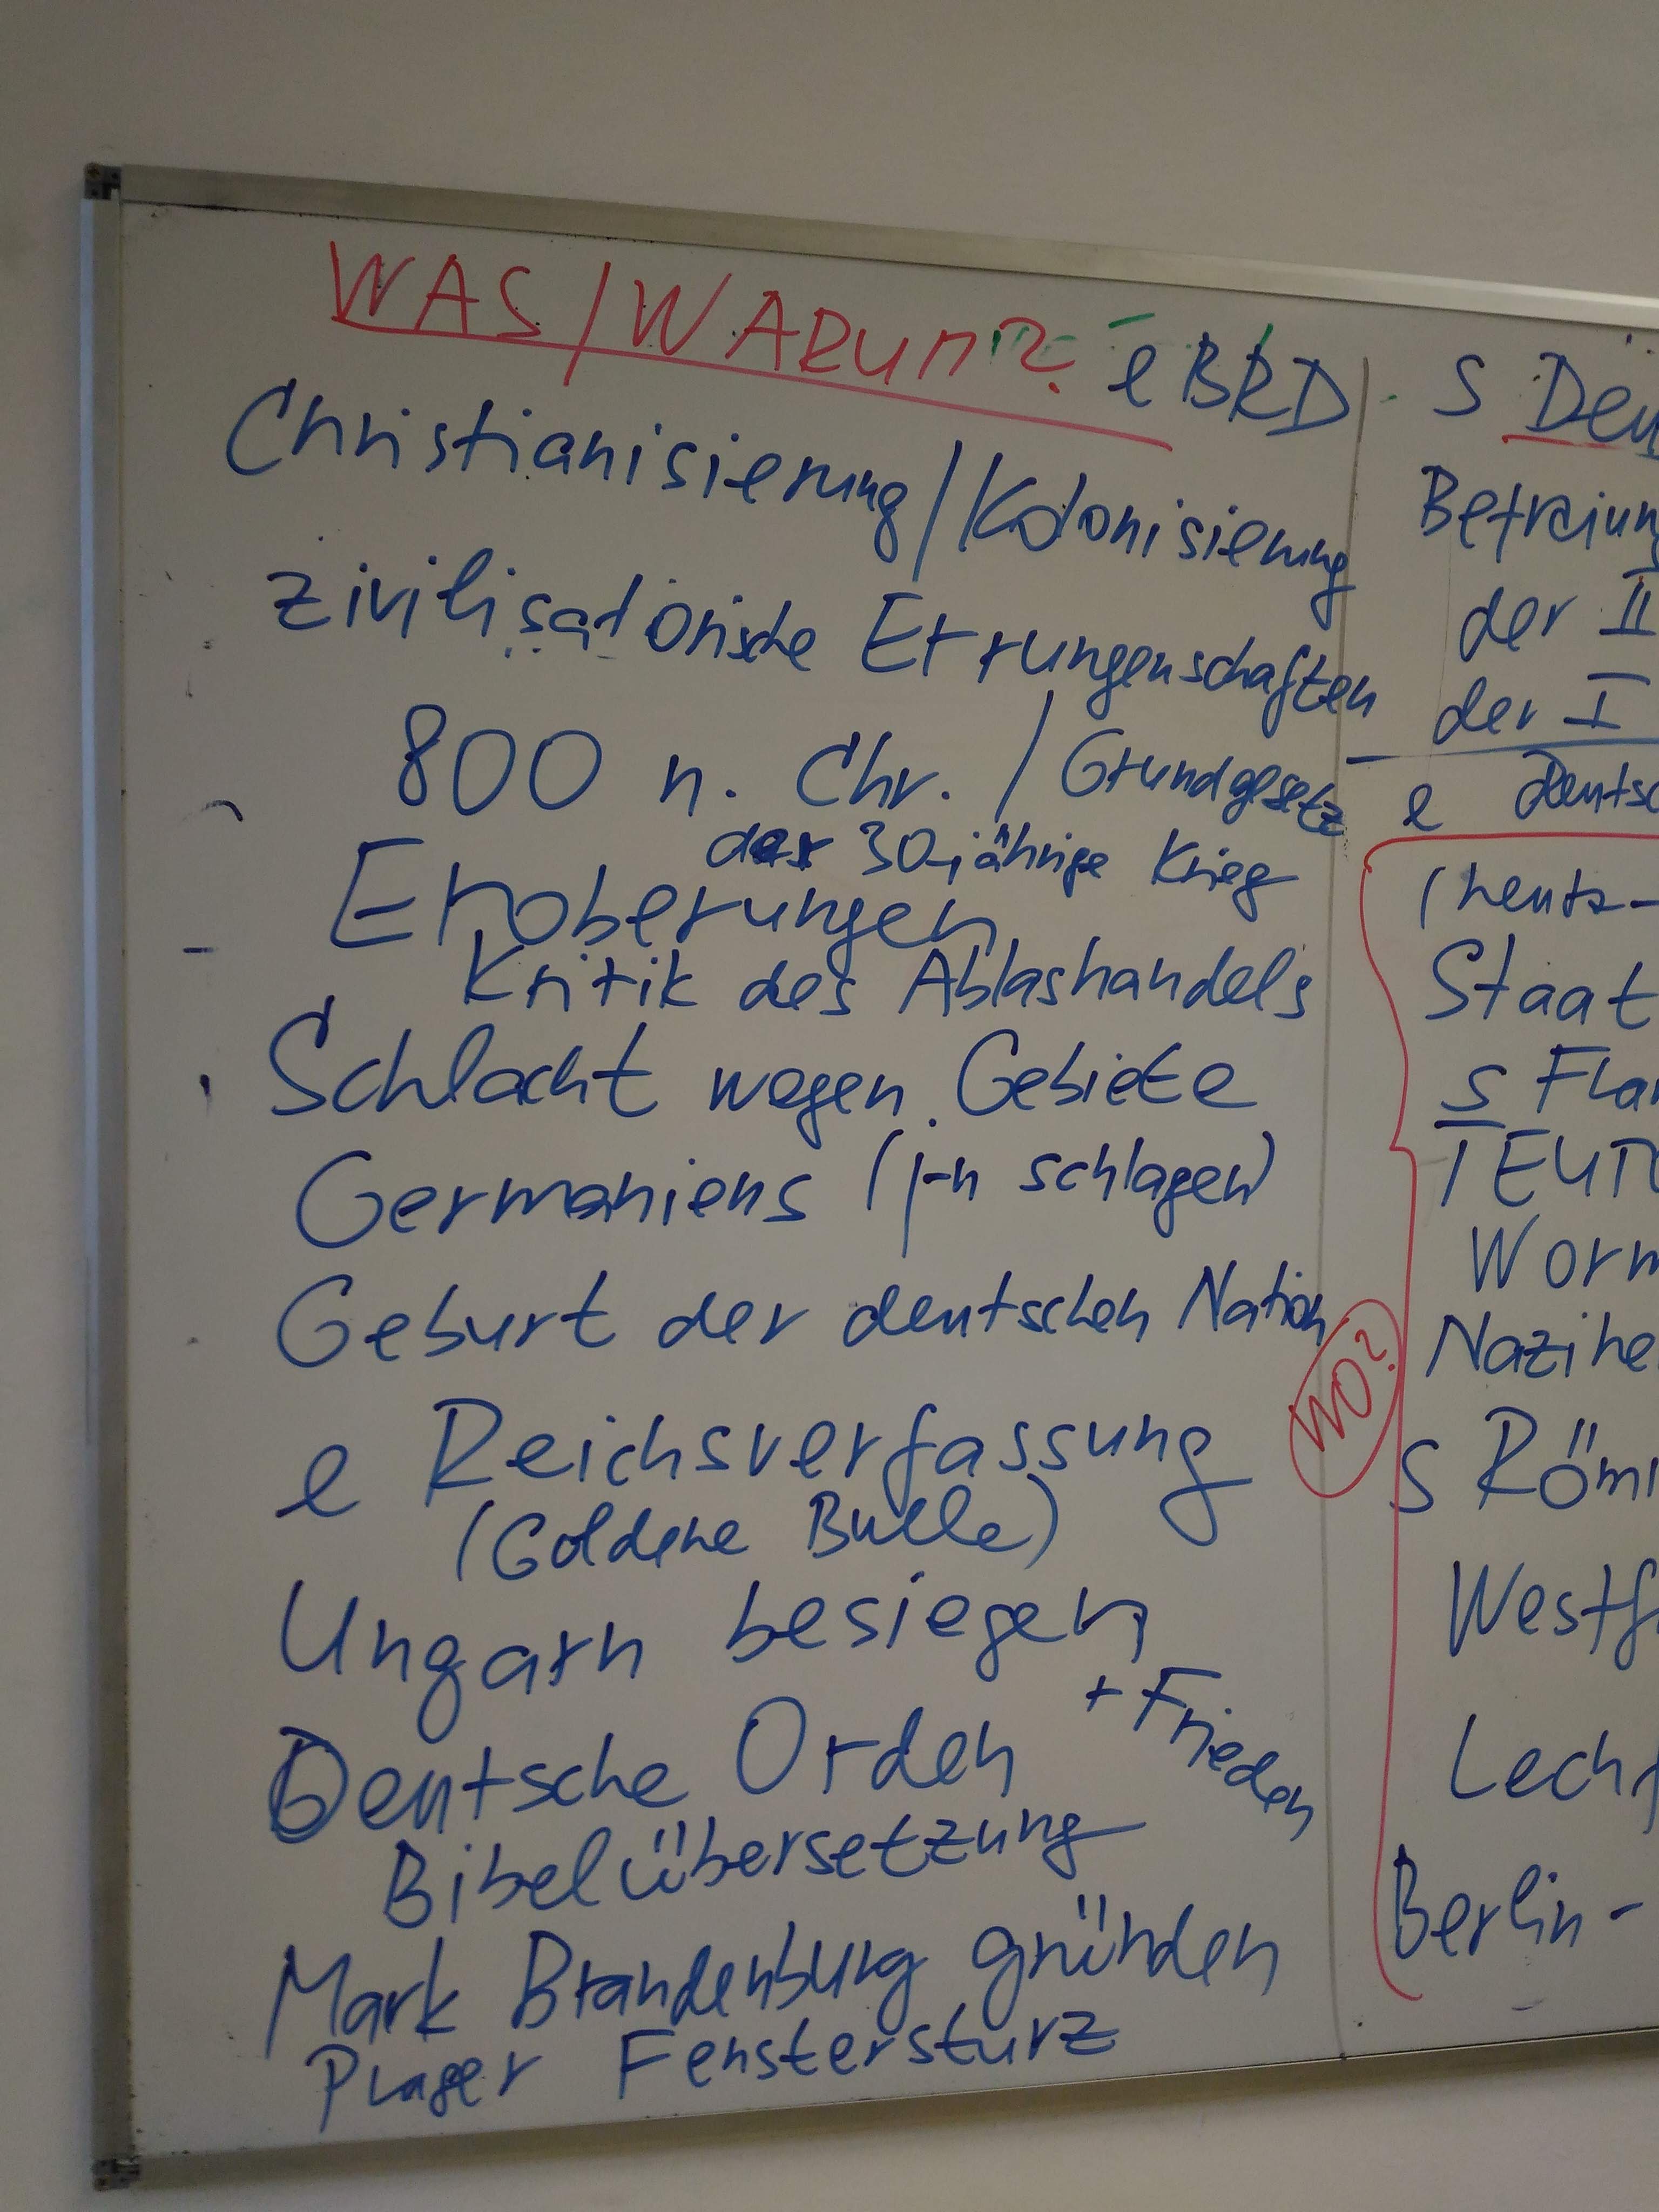 WAS/WARUM? e BRD
Christianisierung/Kolonisierung
zivilisatorische Errungenschaften
800 n. Chr. / Grundgesetz
der 30-jährige Krieg
Eroberungen
Kritik des Ablashandels
Schlacht wegen Gebiete
Germaniens (j-n schlagen)
Geburt der deutschen Nation
e Reichsverfassung
(Goldene Bulle)
Ungarn besiegen
+ Frieden
Deutsche Orden
Bibelübersetzung
Mark Brandenburg gründen
Prager Fenstersturz
WO?
S Deu
Befreiung
der II
der I
e Deutsc
(heute-
Staat
S Fla
TEUTO
Worm
Nazihe
S Römi
Westf
Lechf
Berlin-